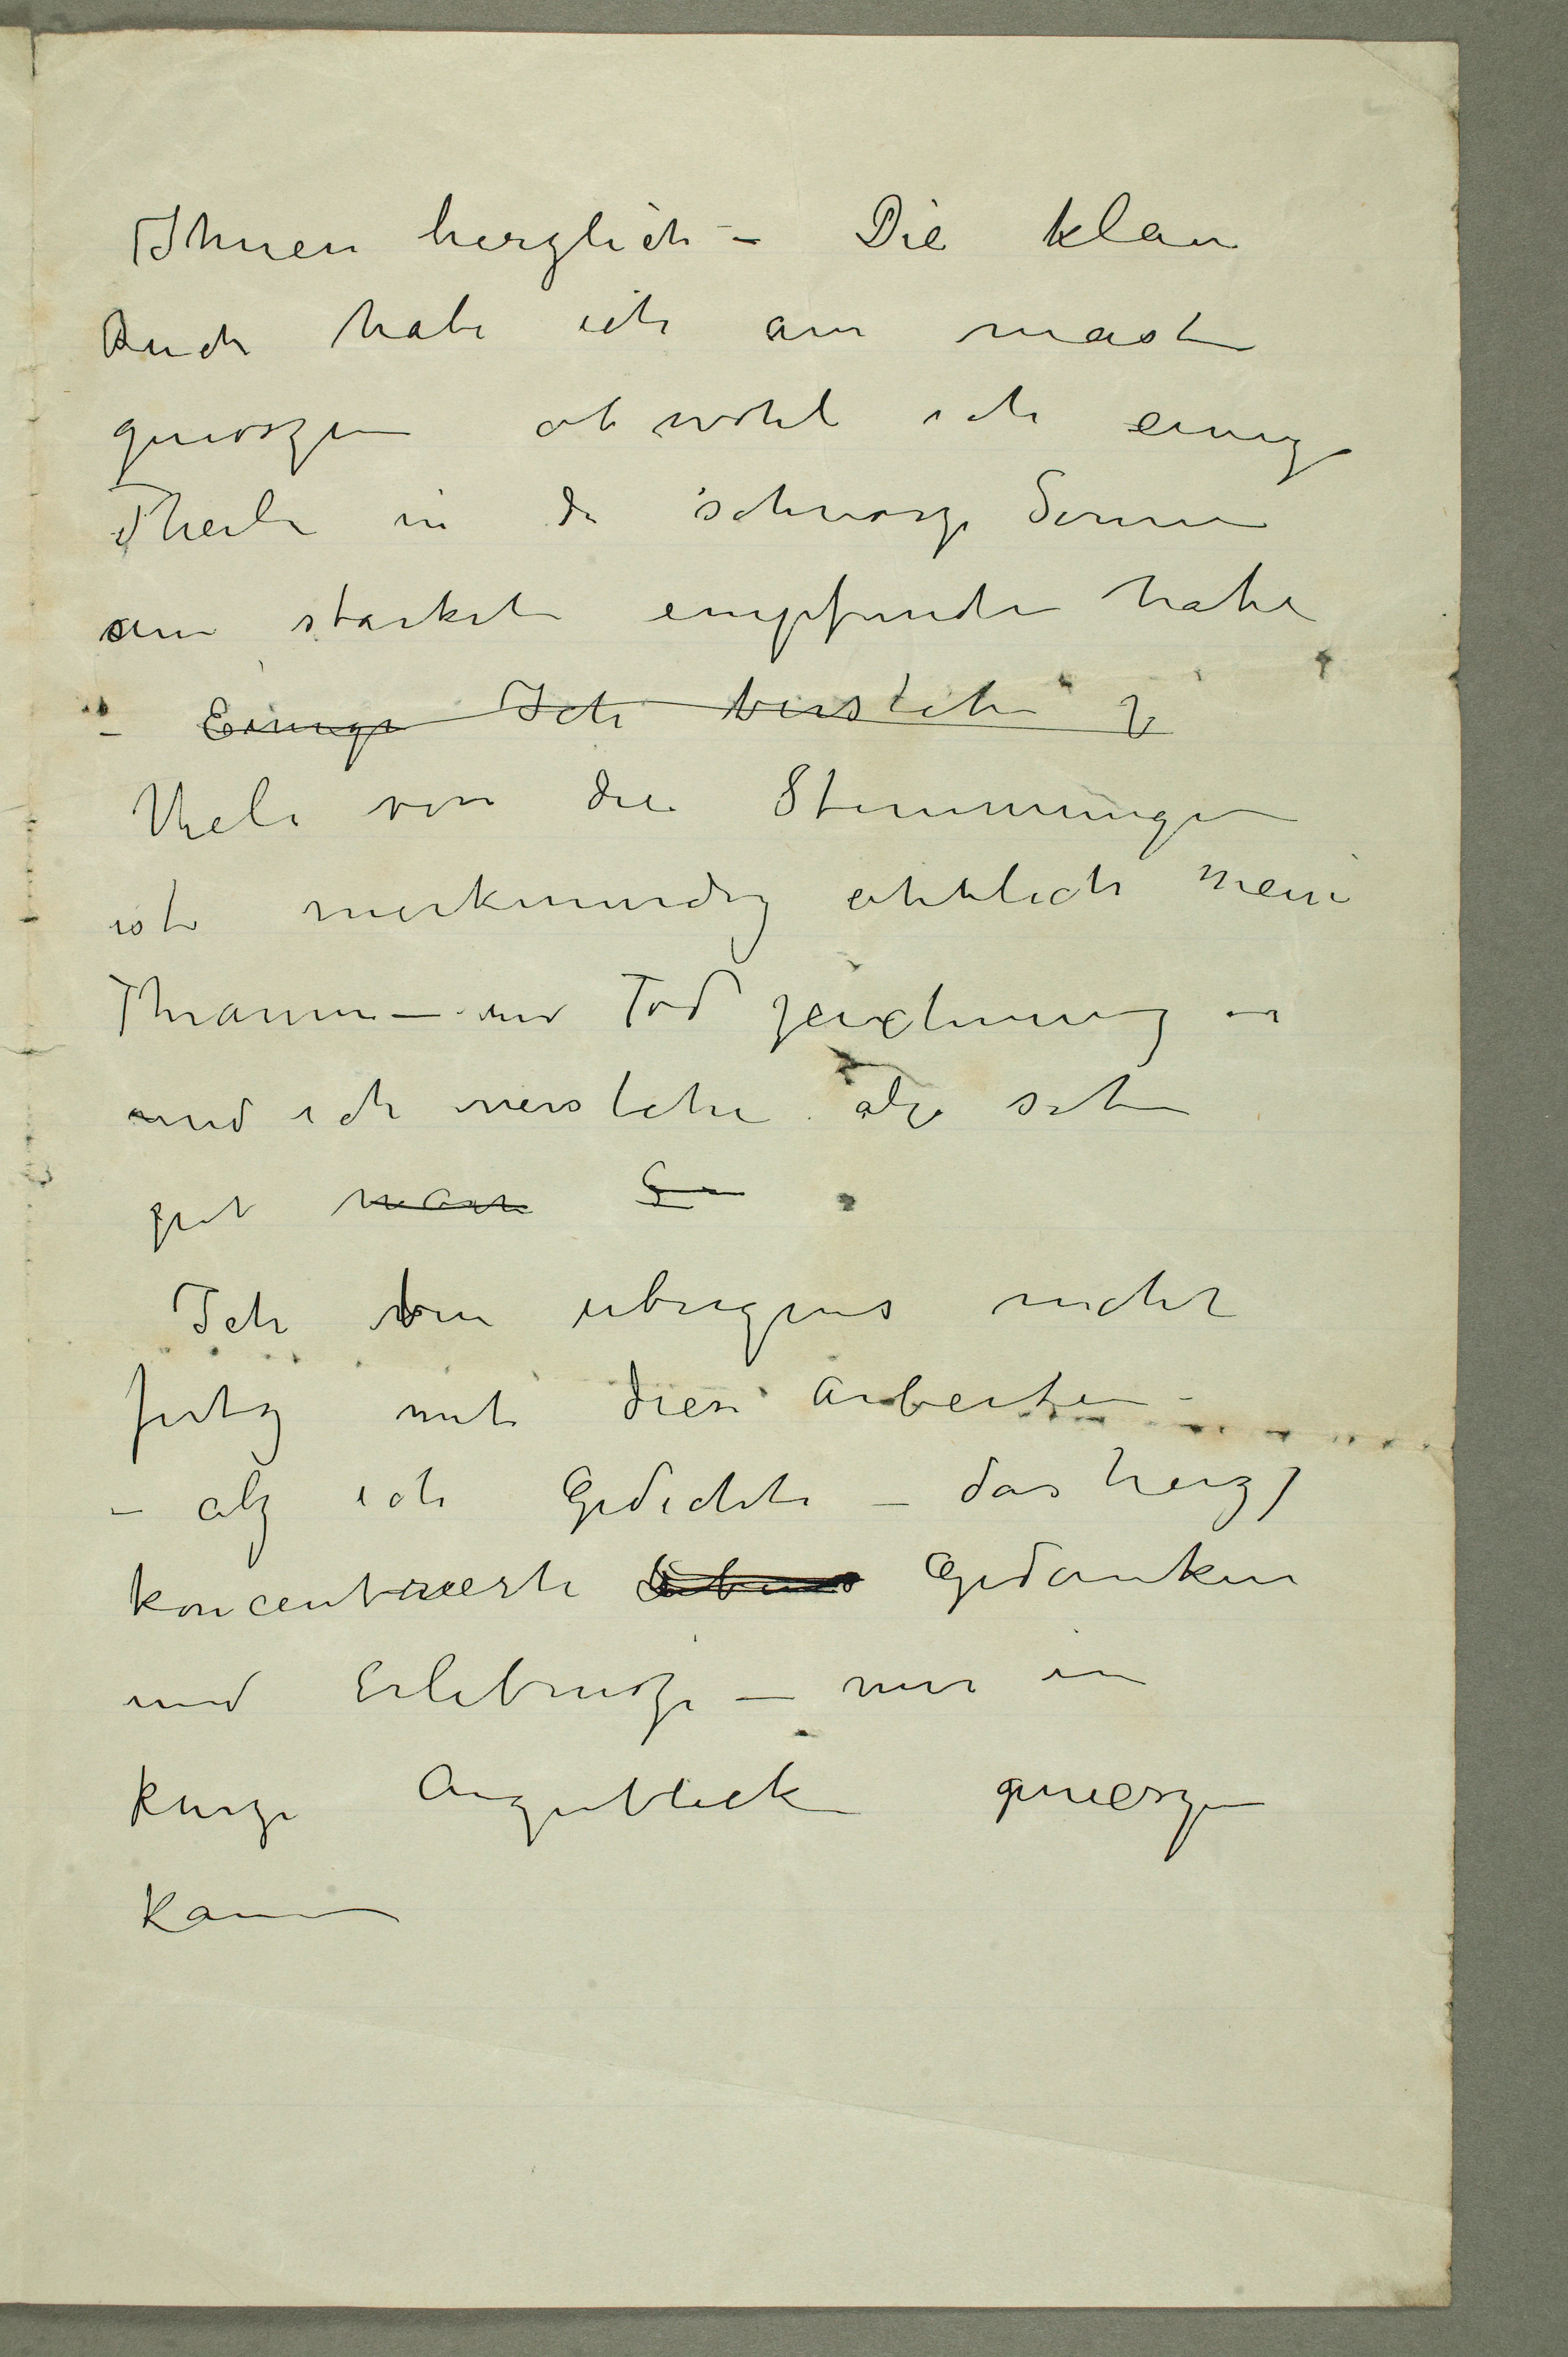 Ihnen herzlich – Die klein
Buch habe ich am mäst
genoszen obwohl ich einige
Theile in de schwarze Sonne
am starkste empfunden habe
– Einige Ich verstehe
Viele von die Stimmungen
ist merkwurdig ehnlich meine
Thraume – und Tod zeichnung –
und ich verstehe alzo sehr
gut
Ich bin ubrigens nicht
fertig mit diese Arbeiten –
– alz ich Gedichte – das heizt
koncentrierte Gedanken
und Erlebnisze – nur in
kurze Augenblicke genieszen
kann